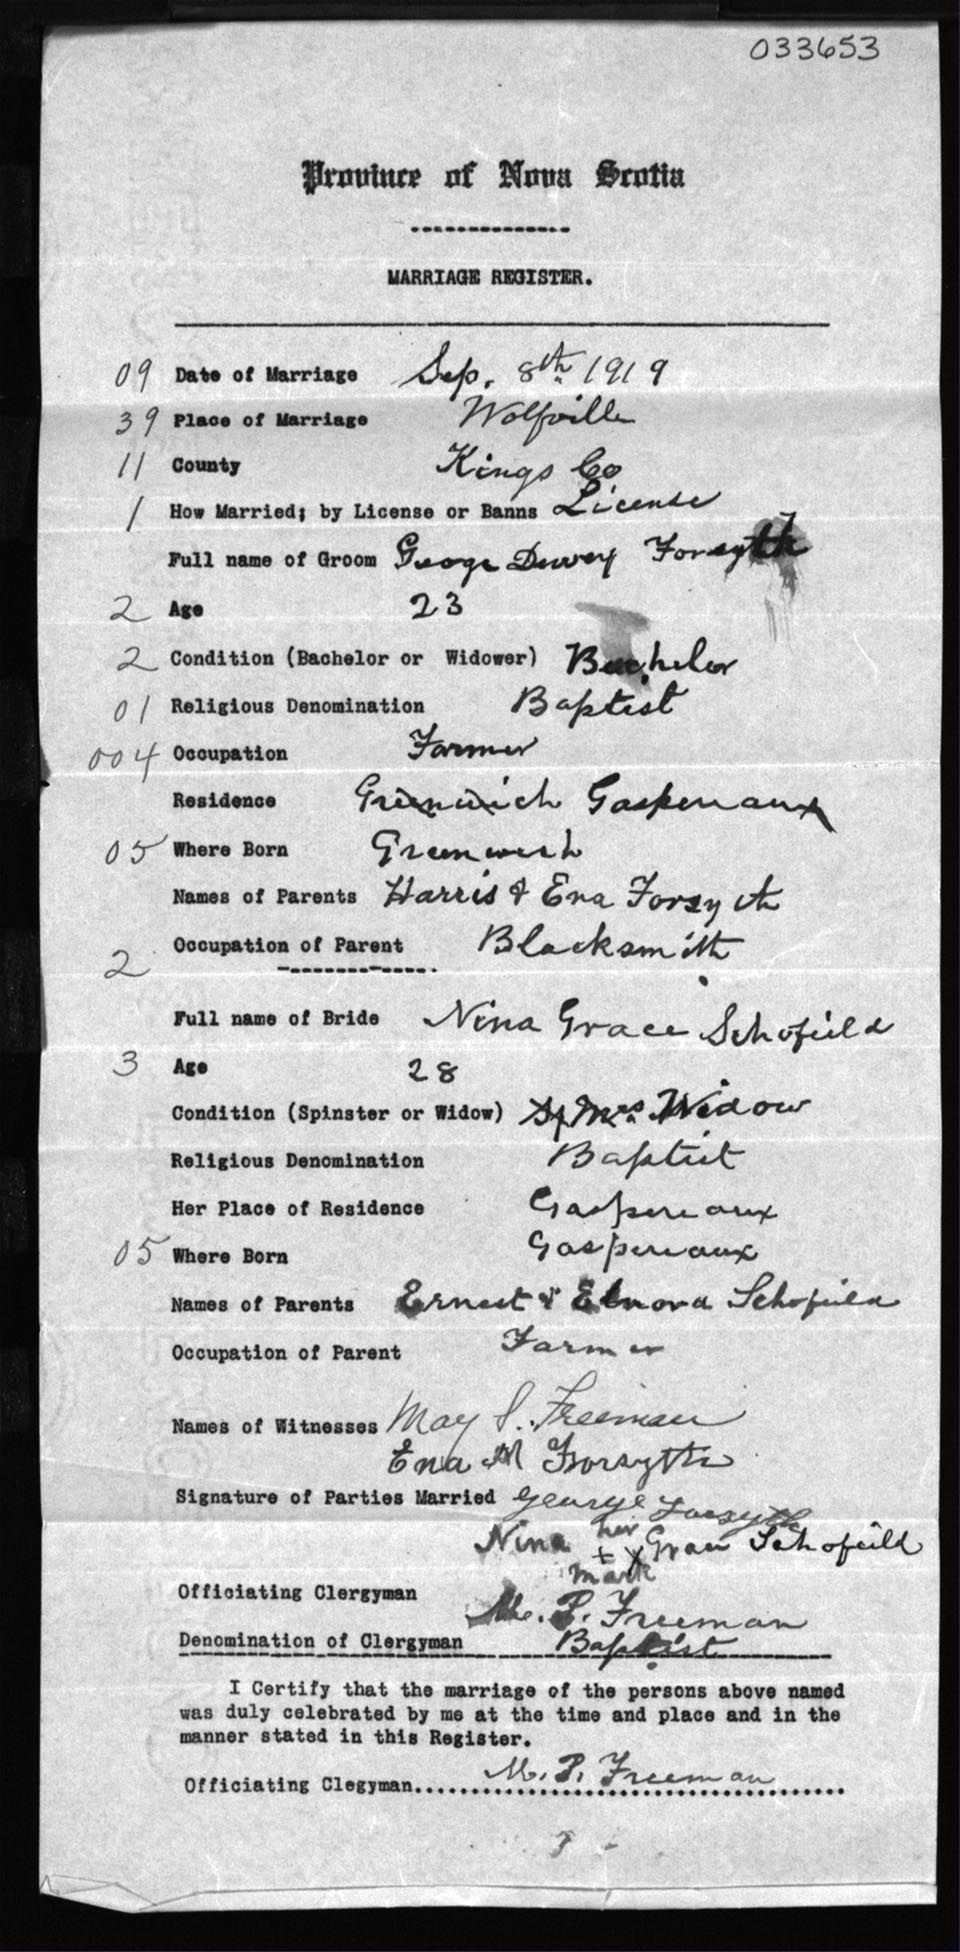 033653
Province of Nova Scotia
MARRIAGE REGISTER.
09 Date of Marriage Sep. 8th 1919
39 Place of Marriage Wolfville
11 County Kings Co
1 How Married; by License or Banns License
Full name of Groom George Dewey Forsyth
2 Age 23
2 Condition (Bachelor or Widower) Bachelor
01 Religious Denomination Baptist
004 Occupation Farmer
Residence Greenwich Gaspereaux
05 Where Born Greenwich
Names of Parents Harris & Ena Forsyth
Occupation of Parent Blacksmith
2
Full name of Bride Nina Grace Schofield
3 Age 28
Condition (Spinster or Widow) Widow
Religious Denomination Baptist
Her Place of Residence Gaspereaux
05 Where Born Gaspereaux
Names of Parents Ernest & Elnora Schofield
Occupation of Parent Farmer
Names of Witnesses May S. Freeman
Ena M Forsyth
Signature of Parties Married George Forsyth
Nina her x Grace Schofeild
mark
Officiating Clergyman M. P. Freeman
Denomination of Clergyman Baptist
I Certify that the marriage of the persons above named
was duly celebrated by me at the time and place and in the
manner stated in this Register.
Officiating Clegyman M. P. Freeman